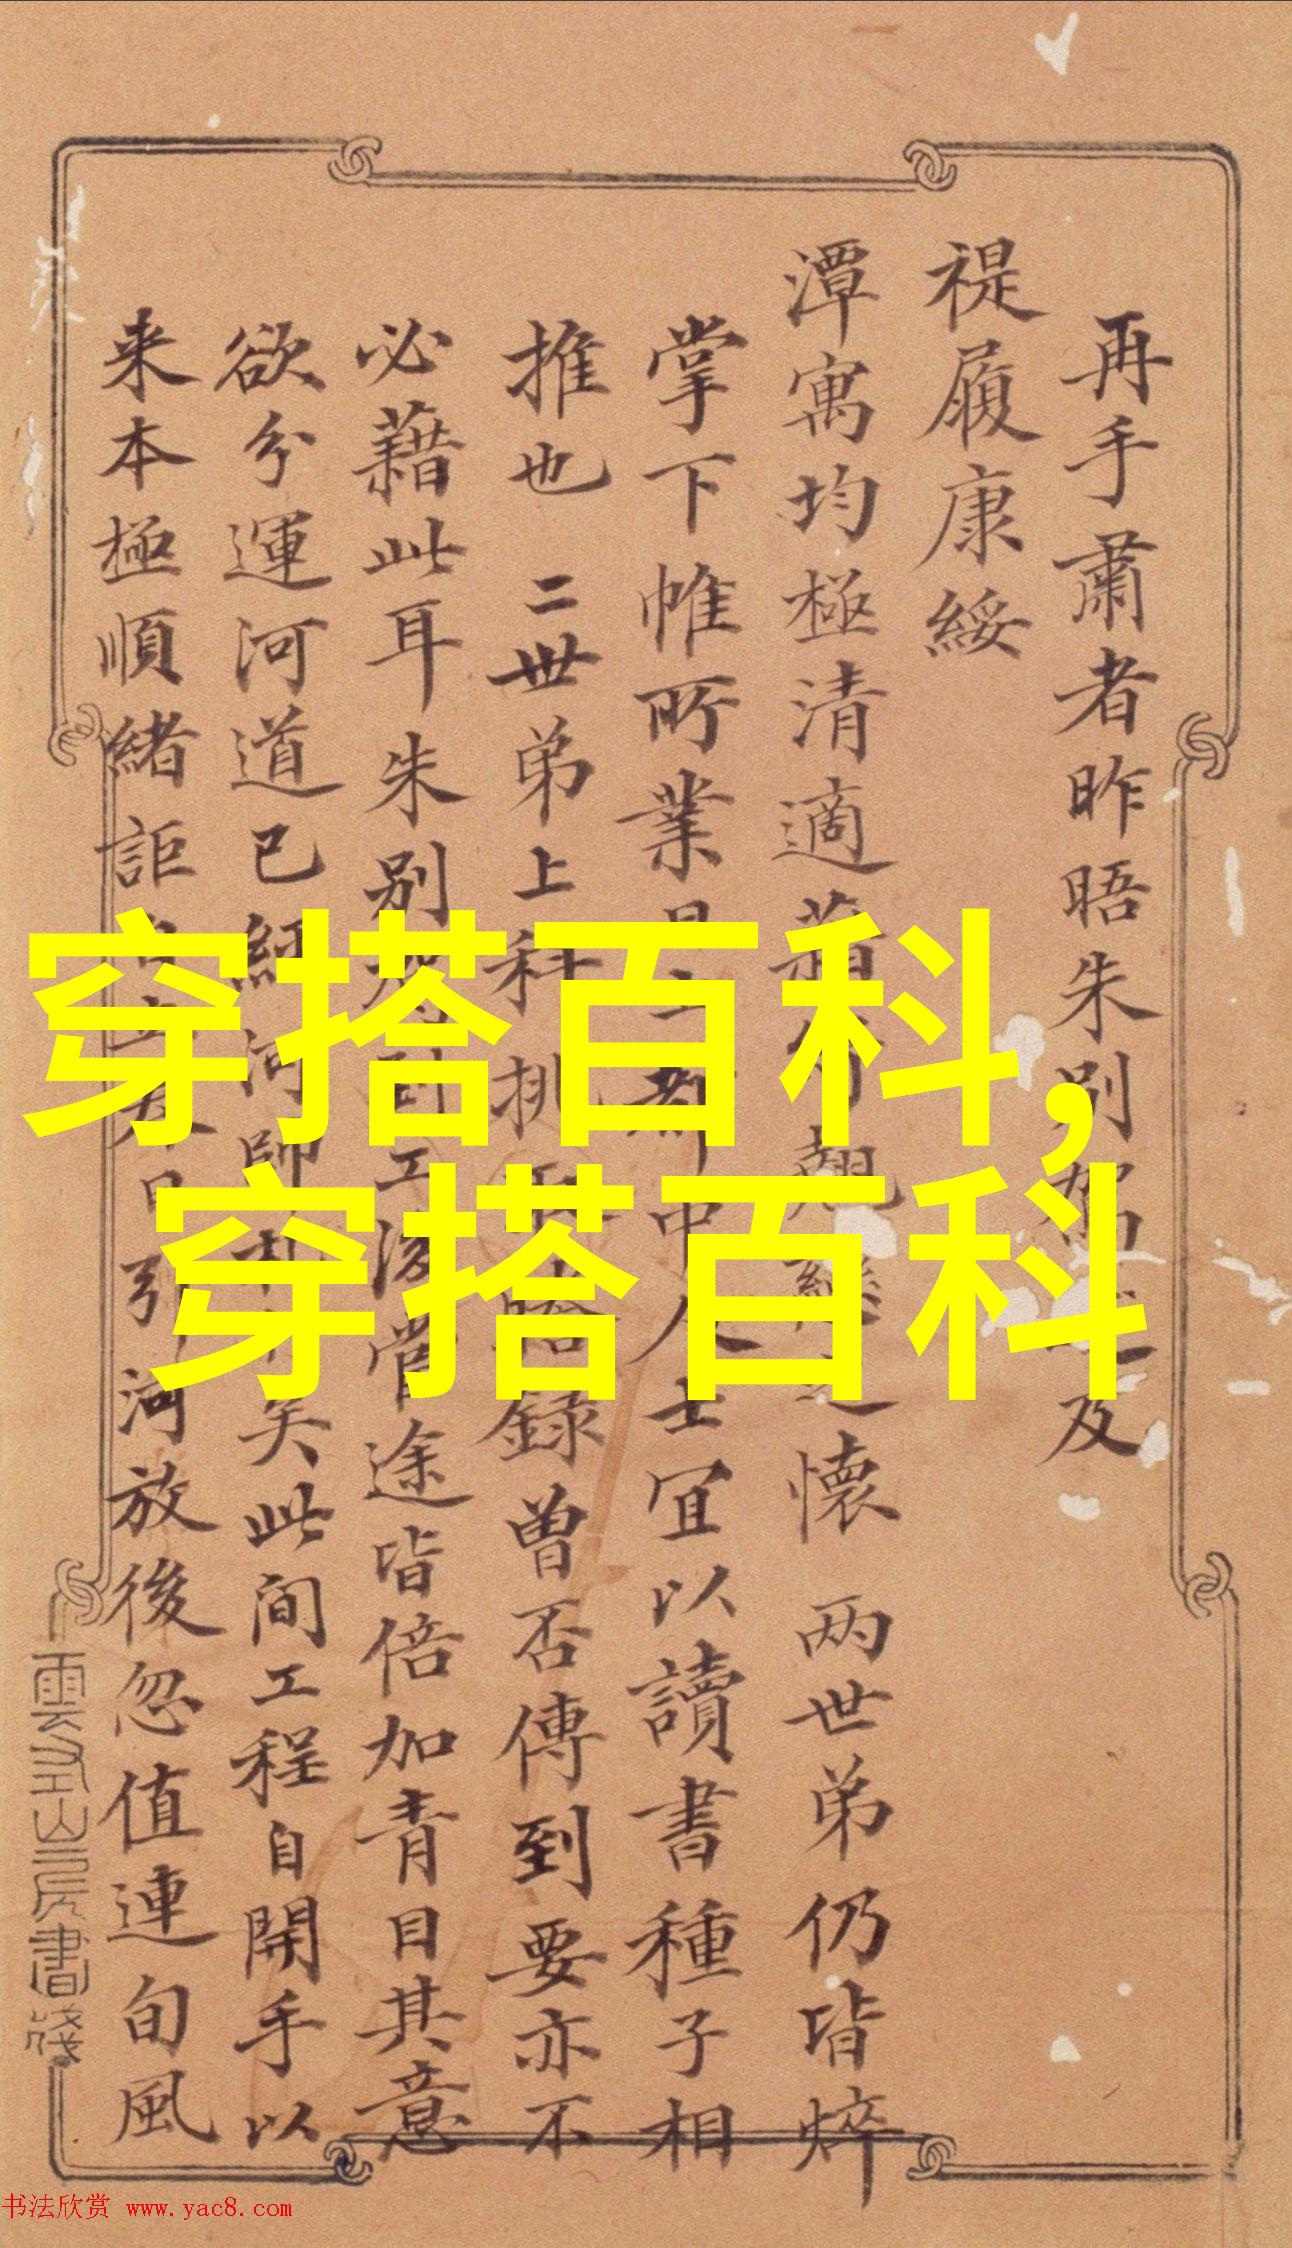 再手肅者昨晤朱别駕
及
禔履康綏
潭寓均極清適
懷 两世弟仍皆焠
掌下帷所業
中人士宜以讀書種子相
推也 二世弟上科挑
錄曾否傳到要亦不
必藉此耳朱别
工後當途皆倍加青目其意
欲分運河道已經河帥
矣此间工程自開手以
来本極順緒詎
日引河放後忽值連旬風
雲
山房書箋
穿搭百科,
穿搭百科
书法欣赏 www.yac8.com